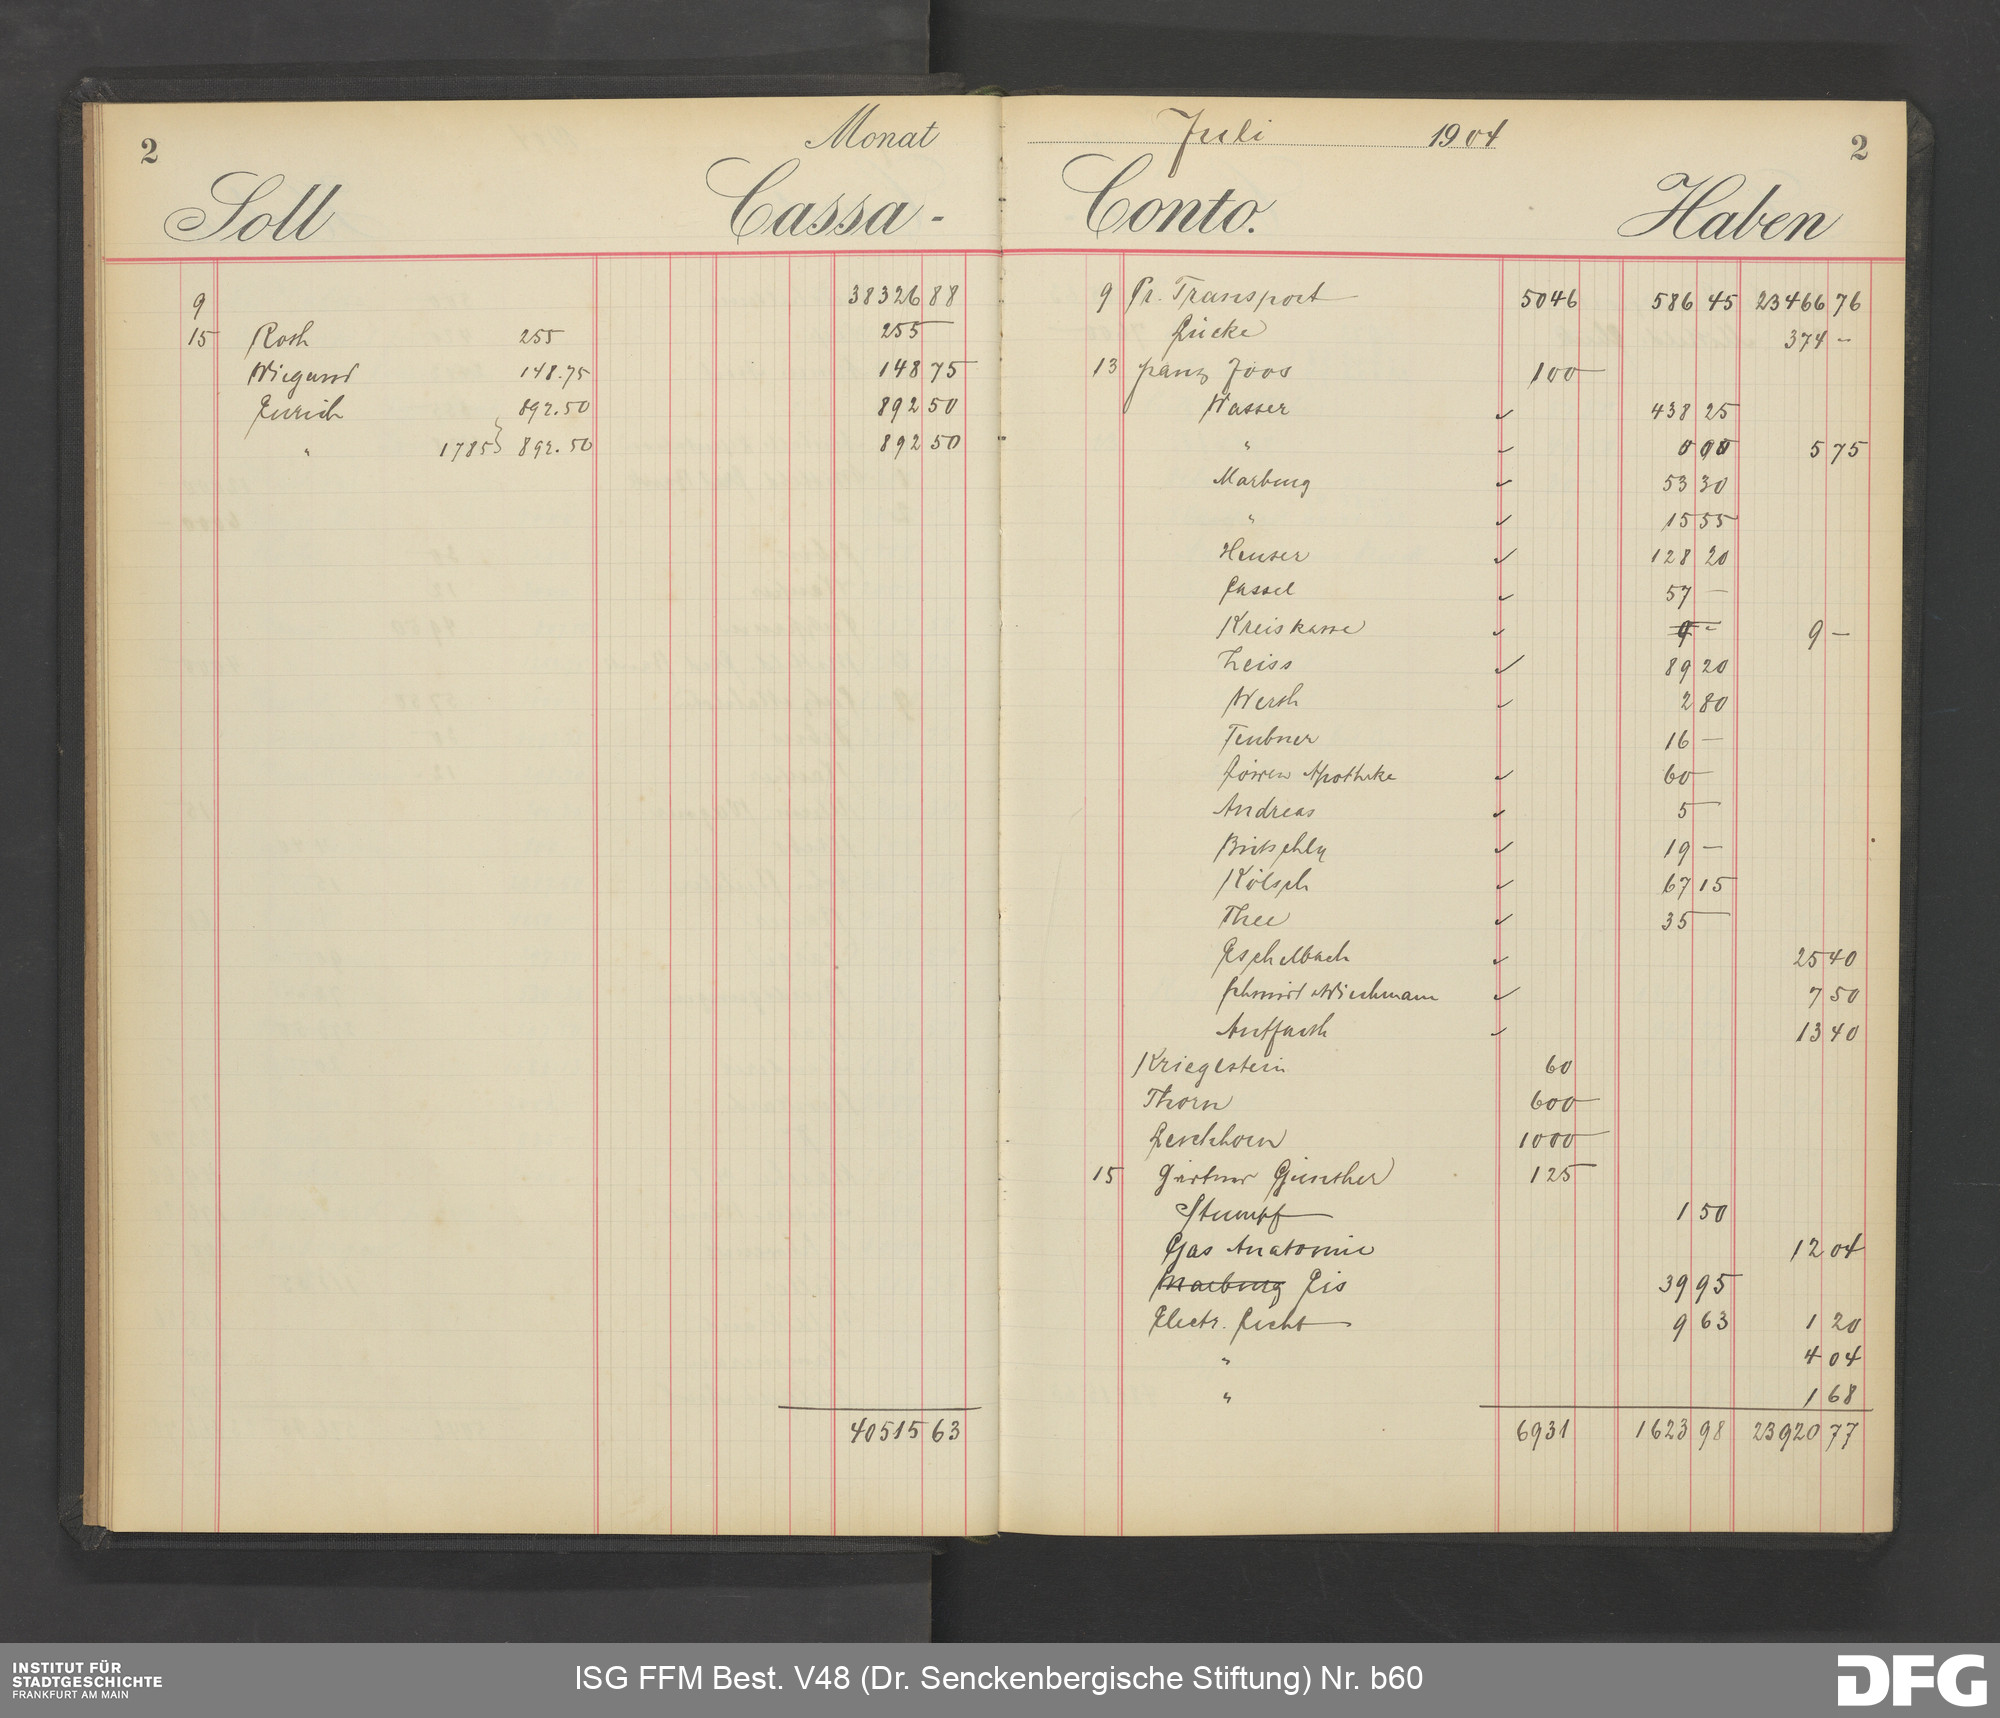 2 Monat
Soll Cassa-
9 38326 88
15 Roth 255 255
Wiegand 148.75 148 75
Zürich 892.50 892 50
" 1785 } 892.50 892 50
40515 63
Juli 1904 2
Conto. Haben
9 Pr. Transport 5046 586 45 23466 76
Lücke 374 –
13 Franz Joos 100
Wasser ✓ 438 25
" ✓ 5 75
Marburg ✓ 53 30
" ✓ 15 55
Heuser ✓ 128 20
Cassel ✓ 57 –
Kreiskasse ✓ 9 – 9 –
Zeiss ✓ 89 20
Werth ✓ 2 80
Teubner 16 –
Löwen Apotheke ✓ 60
Andreas ✓ 5
Bütschly ✓ 19 –
Kölsch ✓ 67 15
Thee ✓ 35
Eschelbach ✓ 25 40
Schmidt Wiechmann ✓ 7 50
Auffarth ✓ 13 40
Krieglstein 60
Thorn 600
Lerchhorn 1000
15 Gärtner Günther 125
Stumpf 1 50
Gas Anatomie 12 04
Marburg Eis 39 95
Electr. Licht 9 63 1 20
" 4 04
" 1 68
6931 1623 98 23920 77
INSTITUT FÜR
STADTGESCHICHTE
FRANKFURT AM MAIN
ISG FFM Best. V48 (Dr. Senckenbergische Stiftung) Nr. b60
DFG